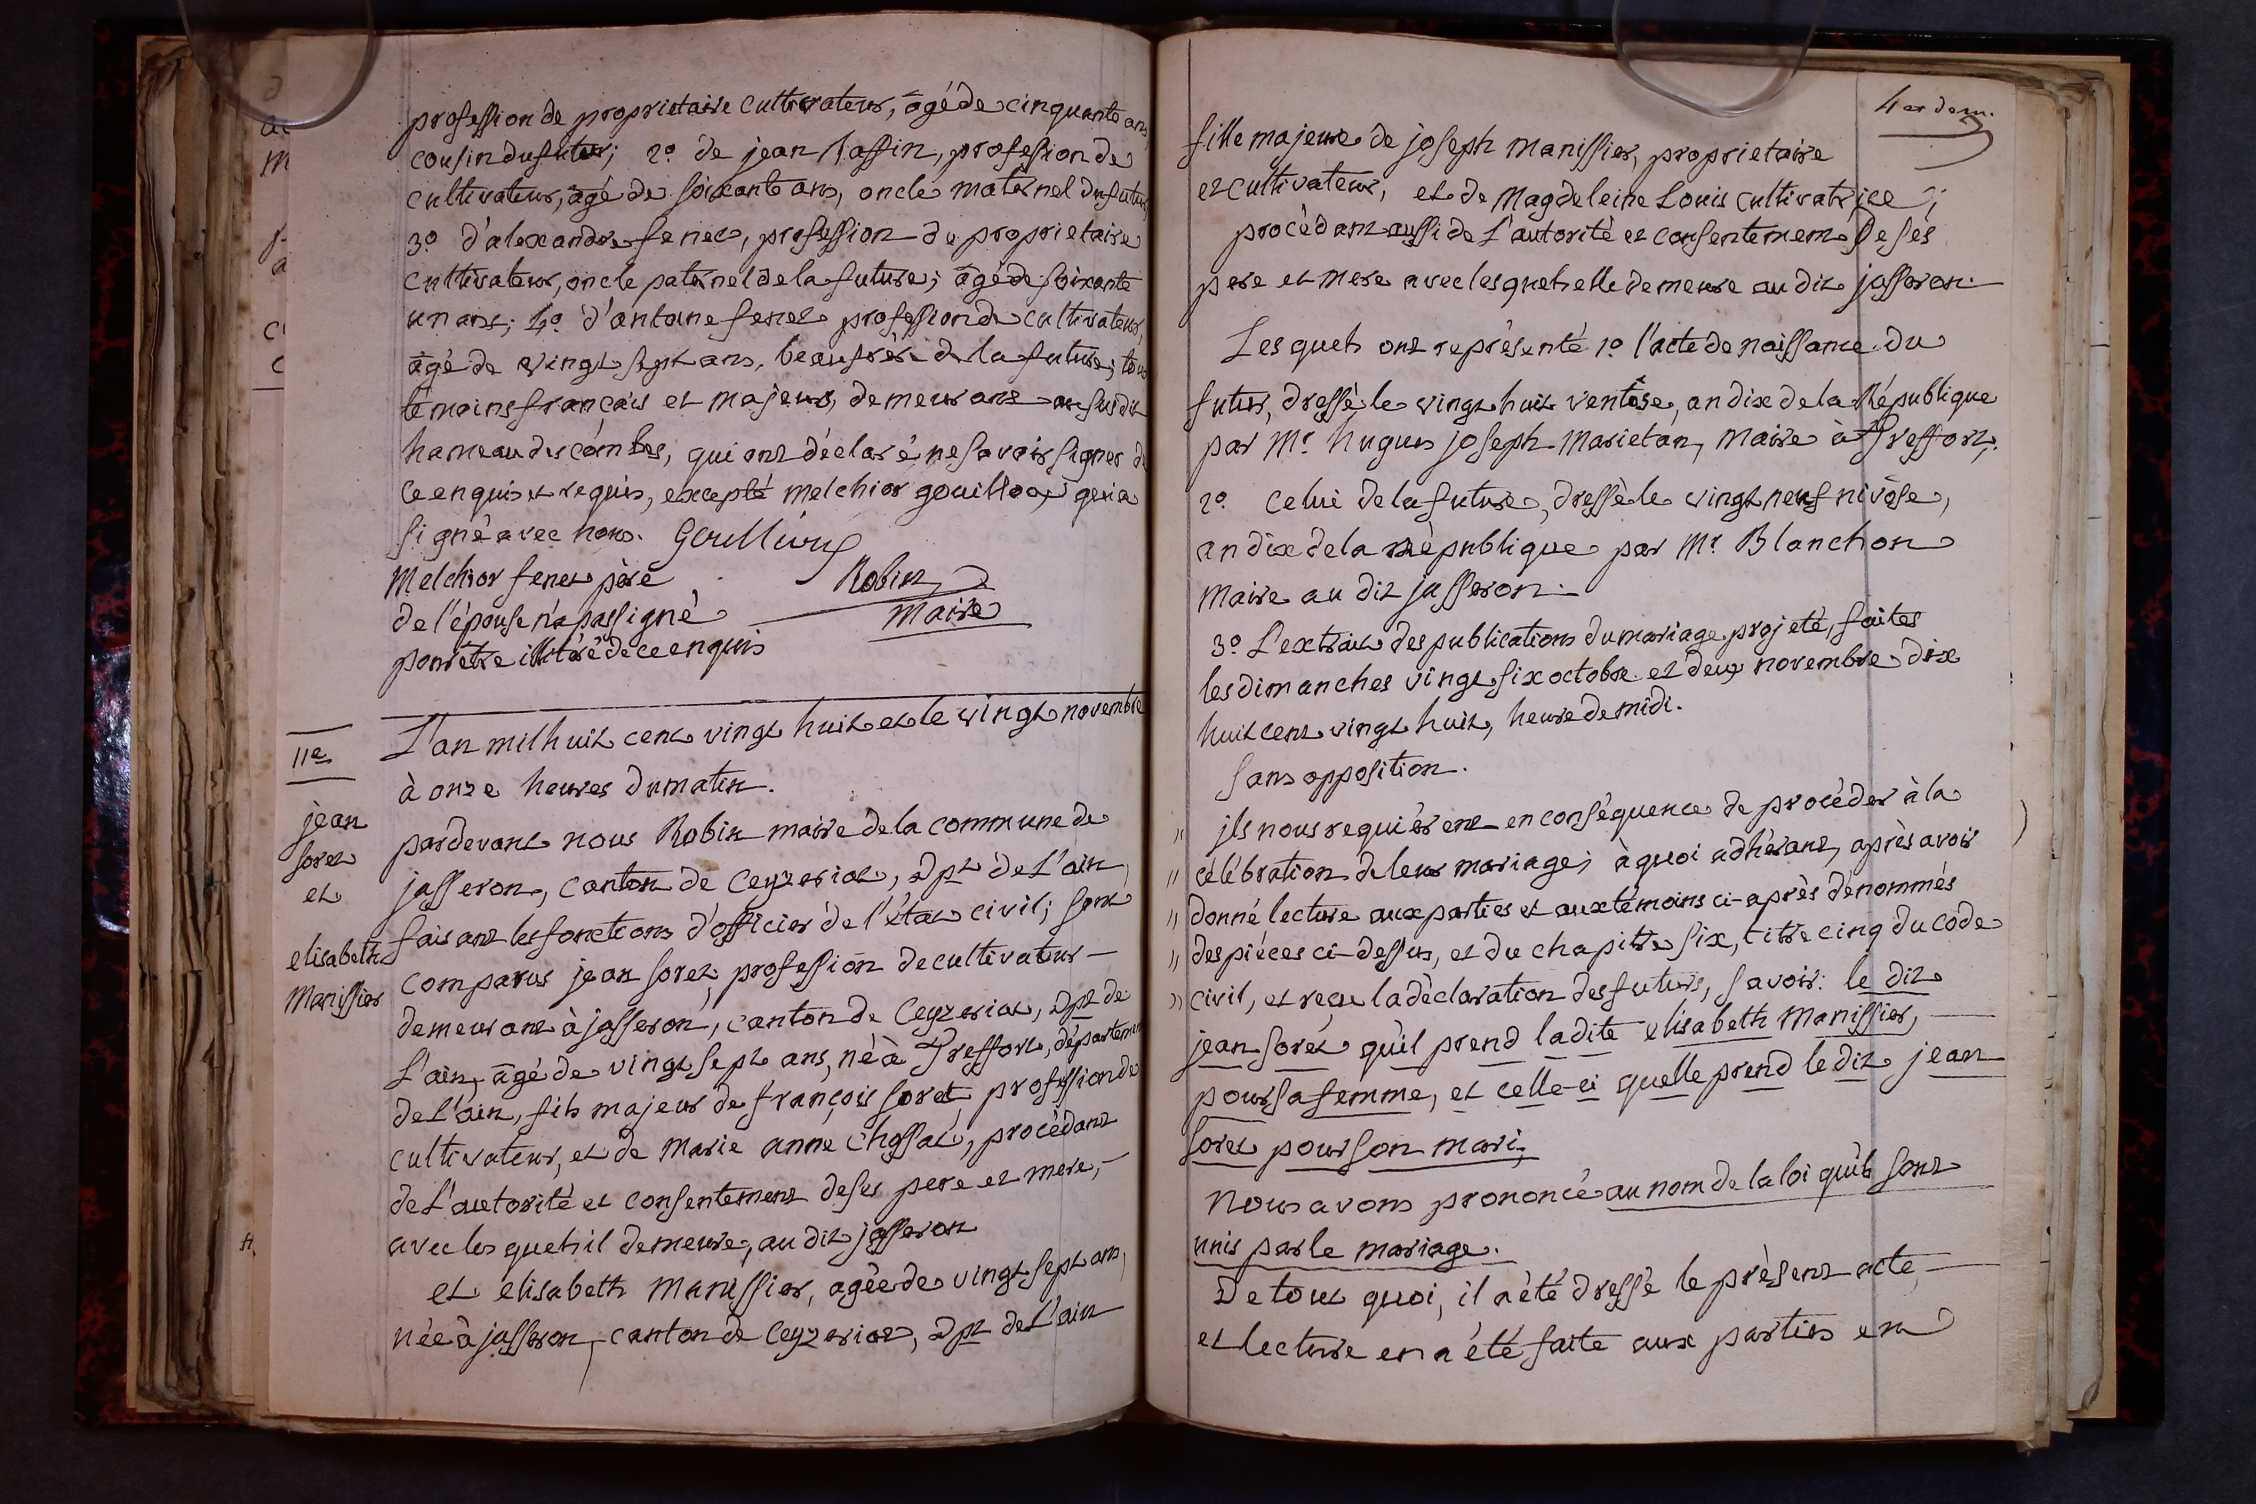 profession de proprietaire cultivateur, âgé de cinquante ans,
cousin du futur; 2o. de jean Massin, profession de
cultivateur, âgé de soixante ans, oncle maternel du futur
3o. d'alexandre fenet, profession de proprietaire
cultivateur, oncle paternel de la future; âgé de soixante
un ans; 4o. d'antoine fenet profession de cultivateur,
âgé de vingt sept ans, beaufrère de la future; tous
témoins français et majeurs, demeurans au susdit
hameau des combes, qui ont déclaré ne savoir signer de
ce enquis et requis, excepté melchior gouilloux qui a
signé avec nous.
Melchior fenet père
de l'épouse n'a pas signé
pour être illitéré de ce enquis
Robin
maire
11e
jean
soret
et
elisabeth
Manissier
L'an mil huit cent vingt huit et le vingt novembre
à onze heures du matin.
pardevant nous Robin maire de la commune de
jasseron, canton de Ceyzeriat, dpt de L'ain,
faisant les fonctions d'officier de l'état civil; sont
comparus jean soret, profession de cultivateur —
demeurant à jasseron, canton de Ceyzeriat, dpt de
L'ain, âgé de vingt sept ans, né à Treffort, département
de L'ain, fils majeur de françois soret, profession de
cultivateur, et de Marie anne Chossat, procédant
de L'autorité et consentement de ses pere et mere, —
avec les quels il demeure, au dit jasseron
et elisabeth Manissier, agée de vingt sept ans,
née à jasseron, canton de Ceyzeriat, dpt de L'ain
fille majeure de joseph Manissier, proprietaire
et cultivateur, et de Magdeleine Louis cultivatrice;
procèdant aussi de L'autorité et consentement de ses
pere et mere avec lesquels elle demeure au dit jasseron.
Les quels ont représenté 1o. l'acte de naissance du
futur, dressé le vingt huit ventôse, an dix de la République
par Mr. hugues joseph Marietan, maire à Treffort,
2o. celui de la future, dressè le vingt neuf nivôse,
an dix de la république par Mr. Blanchon
maire au dit jasseron.
3o. L'extrait des publications du mariage projeté, faites
les dimanches vingt six octobre et deux novembre dix
huit cent vingt huit, heure de midi.
sans opposition.
" jls nous requiérent en conséquence de procéder à la
" célébration de leur mariage; à quoi adhérant, après avoir
" donné lecture aux parties et aux témoins ci-après dénommés
" des piéces ci-dessus, et du chapitre six, titre cinq du code
" civil, et reçu la déclaration des futurs, savoir: le dit
jean soret qu'il prend la dite elisabeth Manissier, —
pour sa femme, et celle-ci quelle prend le dit jean
soret pour son mari;
Nous avons prononcé au nom de la loi qu'ils sont
unis par le mariage.
De tout quoi, il a été dressé le présent acte, —
et lecture en a été faite aux parties en